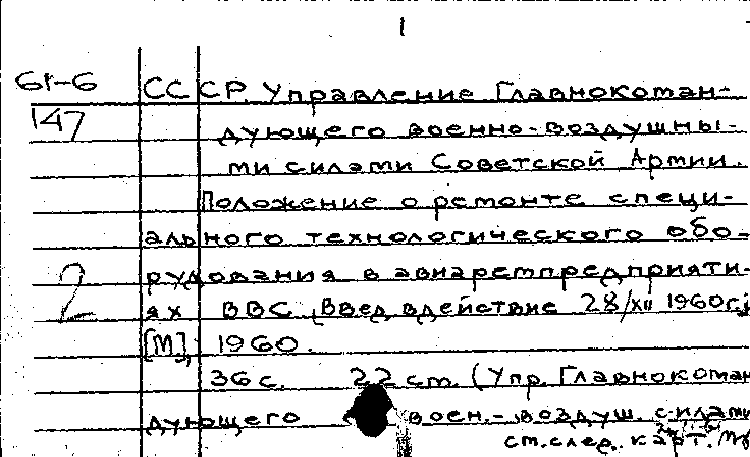 1
61-6 СССР. Управление Главнокоман-
147 дующего военно-воздушны-
ми силами Советской Армии.
Положение о ремонте специ-
ального технологического обо-
рудования в авиаремпредприяти-
2 ях ВВС. [Введ. в действие 28/XII 1960г.]
[М], 1960.
36 с. 22 см. (Упр. Главнокоман
дующего воен.-воздуш. силами
см. след. карт.